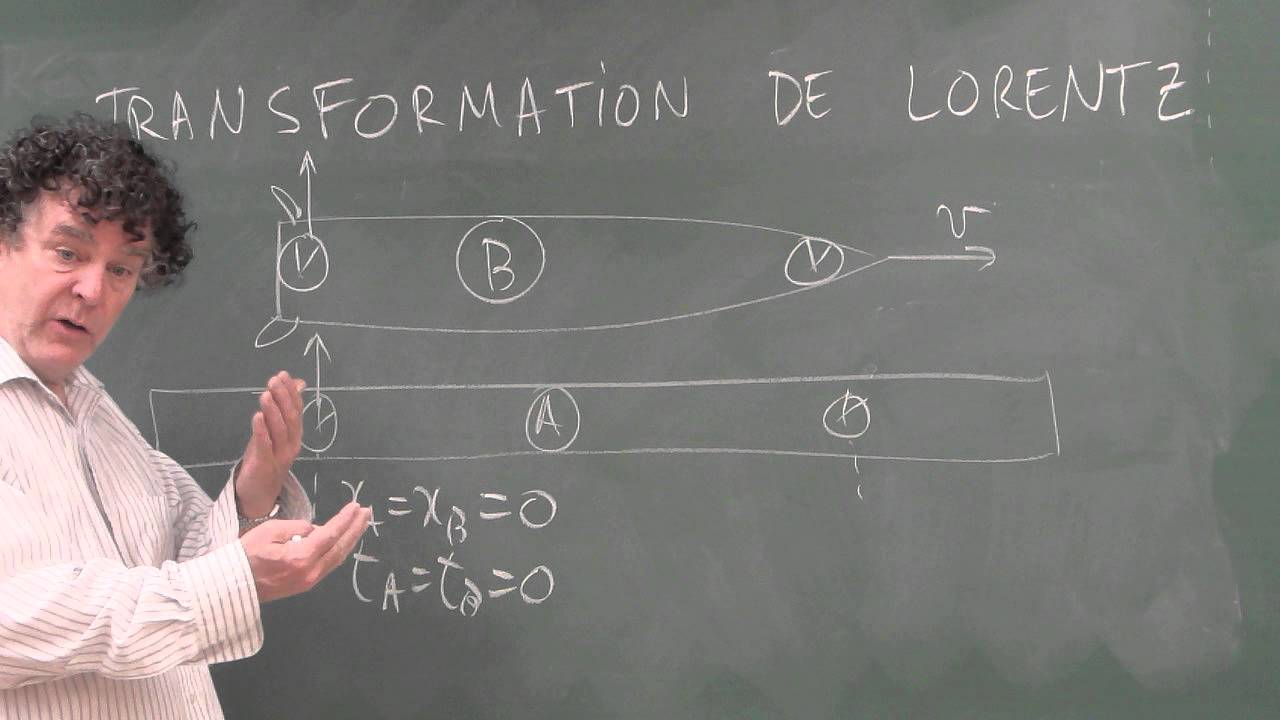 TRANSFORMATION DE LORENTZ
v
B
A
x_A = x_B = 0
t_A = t_B = 0